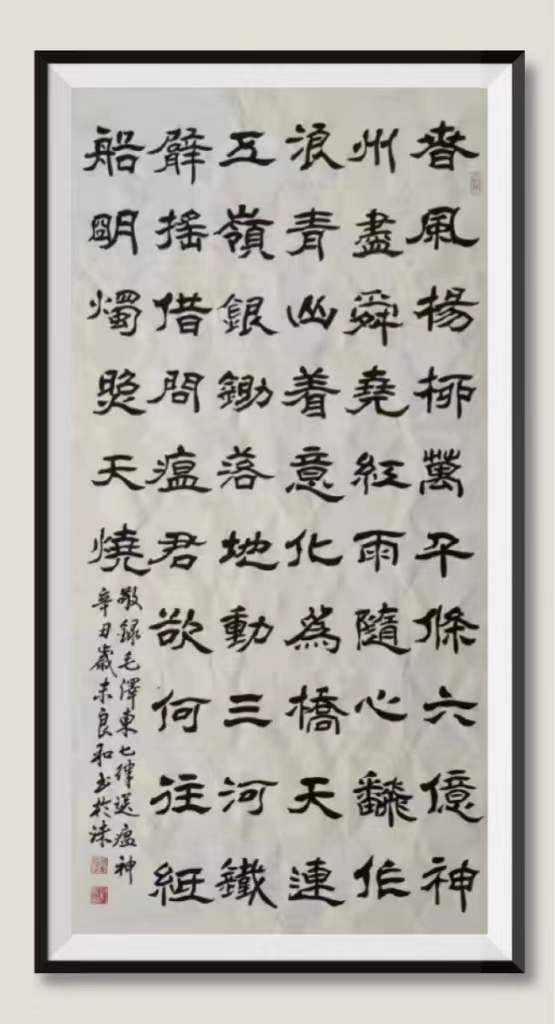 春風楊柳萬千條六億神
州盡舜堯紅雨隨心飜作
浪青山着意化為橋天連
五嶺銀鋤落地動三河鐵
臂搖借問瘟君欲何往紙
船明燭照天燒
敬録毛澤東七律送瘟神
辛丑歲末良和書於